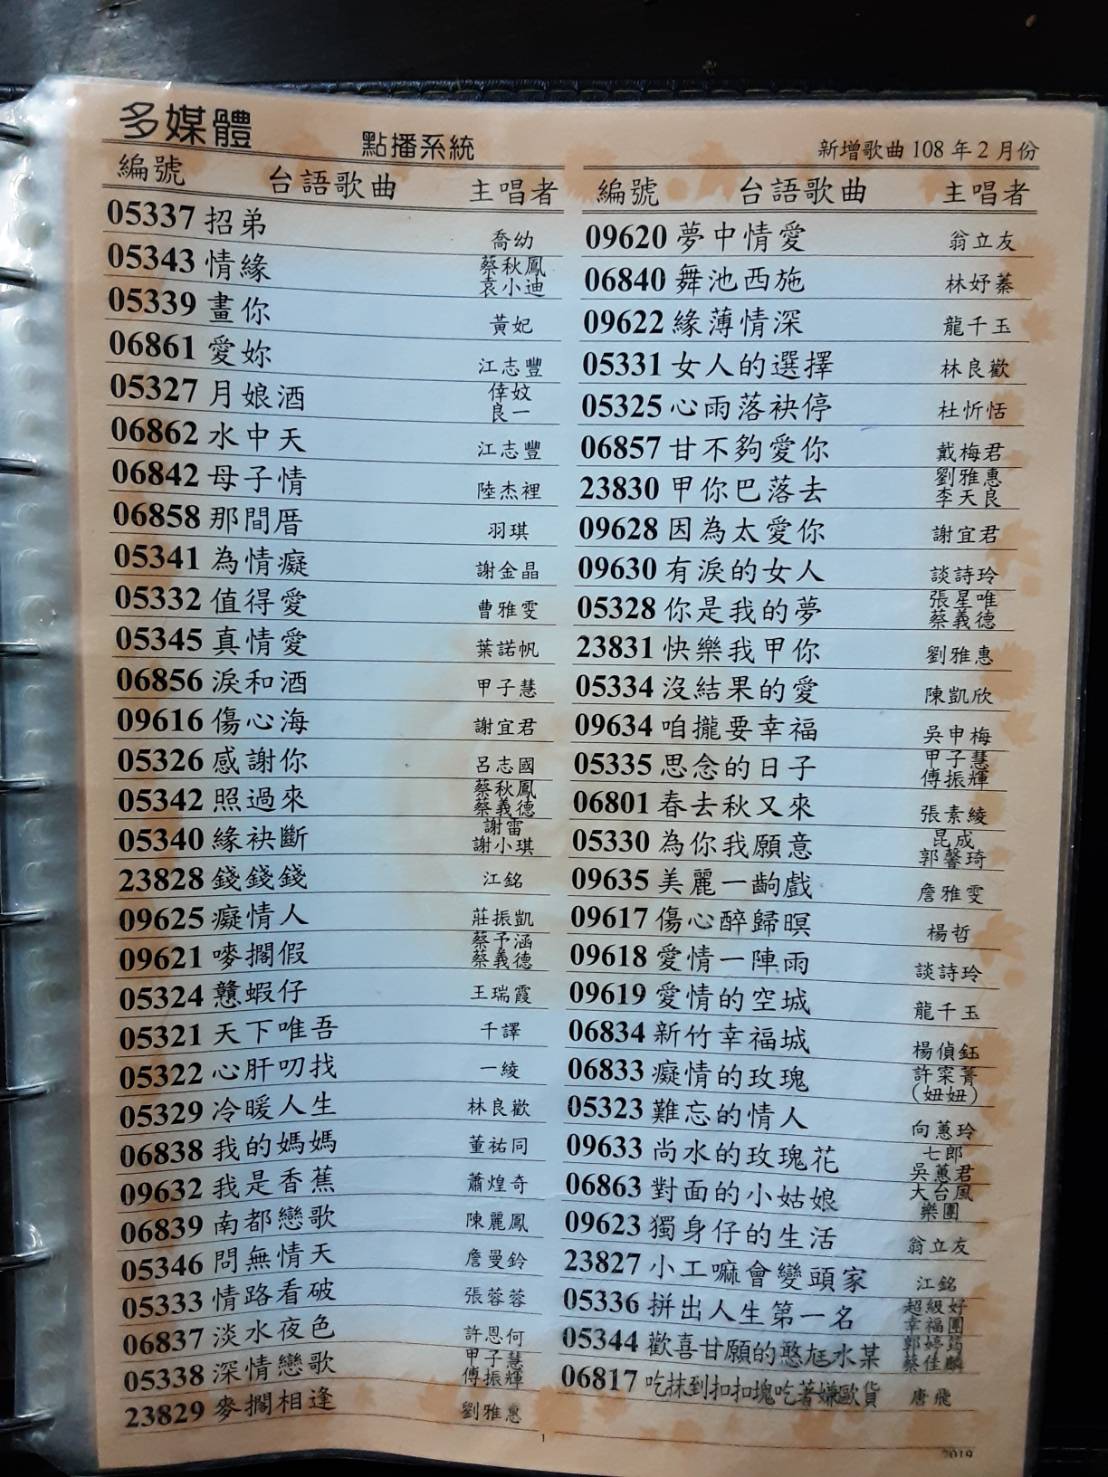 多媒體 點播系統 新增歌曲 108 年 2 月份
編號 台語歌曲 主唱者
05337 招弟 喬幼
05343 情緣 蔡秋鳳 袁小迪
05339 畫你 黃妃
06861 愛妳 江志豐
05327 月娘酒 倖妏 良一
06862 水中天 江志豐
06842 母子情 陸杰裡
06858 那間厝 羽琪
05341 為情癡 謝金晶
05332 值得愛 曹雅雯
05345 真情愛 葉諾帆
06856 淚和酒 甲子慧
09616 傷心海 謝宜君
05326 感謝你 呂志國
05342 照過來 蔡秋鳳 蔡義德
05340 緣袂斷 謝雷 謝小琪
23828 錢錢錢 江銘
09625 癡情人 莊振凱
09621 嘜擱假 蔡予涵 蔡義德
05324 戇蝦仔 王瑞霞
05321 天下唯吾 千譯
05322 心肝叨找 一綾
05329 冷暖人生 林良歡
06838 我的媽媽 董祐同
09632 我是香蕉 蕭煌奇
06839 南都戀歌 陳麗鳳
05346 問無情天 詹曼鈴
05333 情路看破 張蓉蓉
06837 淡水夜色 許恩何
05338 深情戀歌 甲子慧 傅振輝
23829 麥擱相逢 劉雅惠
編號 台語歌曲 主唱者
09620 夢中情愛 翁立友
06840 舞池西施 林妤蓁
09622 緣薄情深 龍千玉
05331 女人的選擇 林良歡
05325 心雨落袂停 杜忻恬
06857 甘不夠愛你 戴梅君
23830 甲你巴落去 劉雅惠 李天良
09628 因為太愛你 謝宜君
09630 有淚的女人 談詩玲
05328 你是我的夢 張星唯 蔡義德
23831 快樂我甲你 劉雅惠
05334 沒結果的愛 陳凱欣
09634 咱攏要幸福 吳申梅
05335 思念的日子 甲子慧 傅振輝
06801 春去秋又來 張素綾
05330 為你我願意 昆成 郭馨琦
09635 美麗一齣戲 詹雅雯
09617 傷心醉歸暝 楊哲
09618 愛情一陣雨 談詩玲
09619 愛情的空城 龍千玉
06834 新竹幸福城 楊偵鈺
06833 癡情的玫瑰 許寀菁 (妞妞)
05323 難忘的情人 向蕙玲
09633 尚水的玫瑰花 七郎 吳蕙君
06863 對面的小姑娘 大台風 樂團
09623 獨身仔的生活 翁立友
23827 小工嘛會變頭家 江銘
05336 拼出人生第一名 超級好 幸福團
05344 歡喜甘願的憨尪水某 郭婷筠 蔡佳麟
06817 吃抹到扣扣塊吃著嫌歐貨 唐飛
1
2019